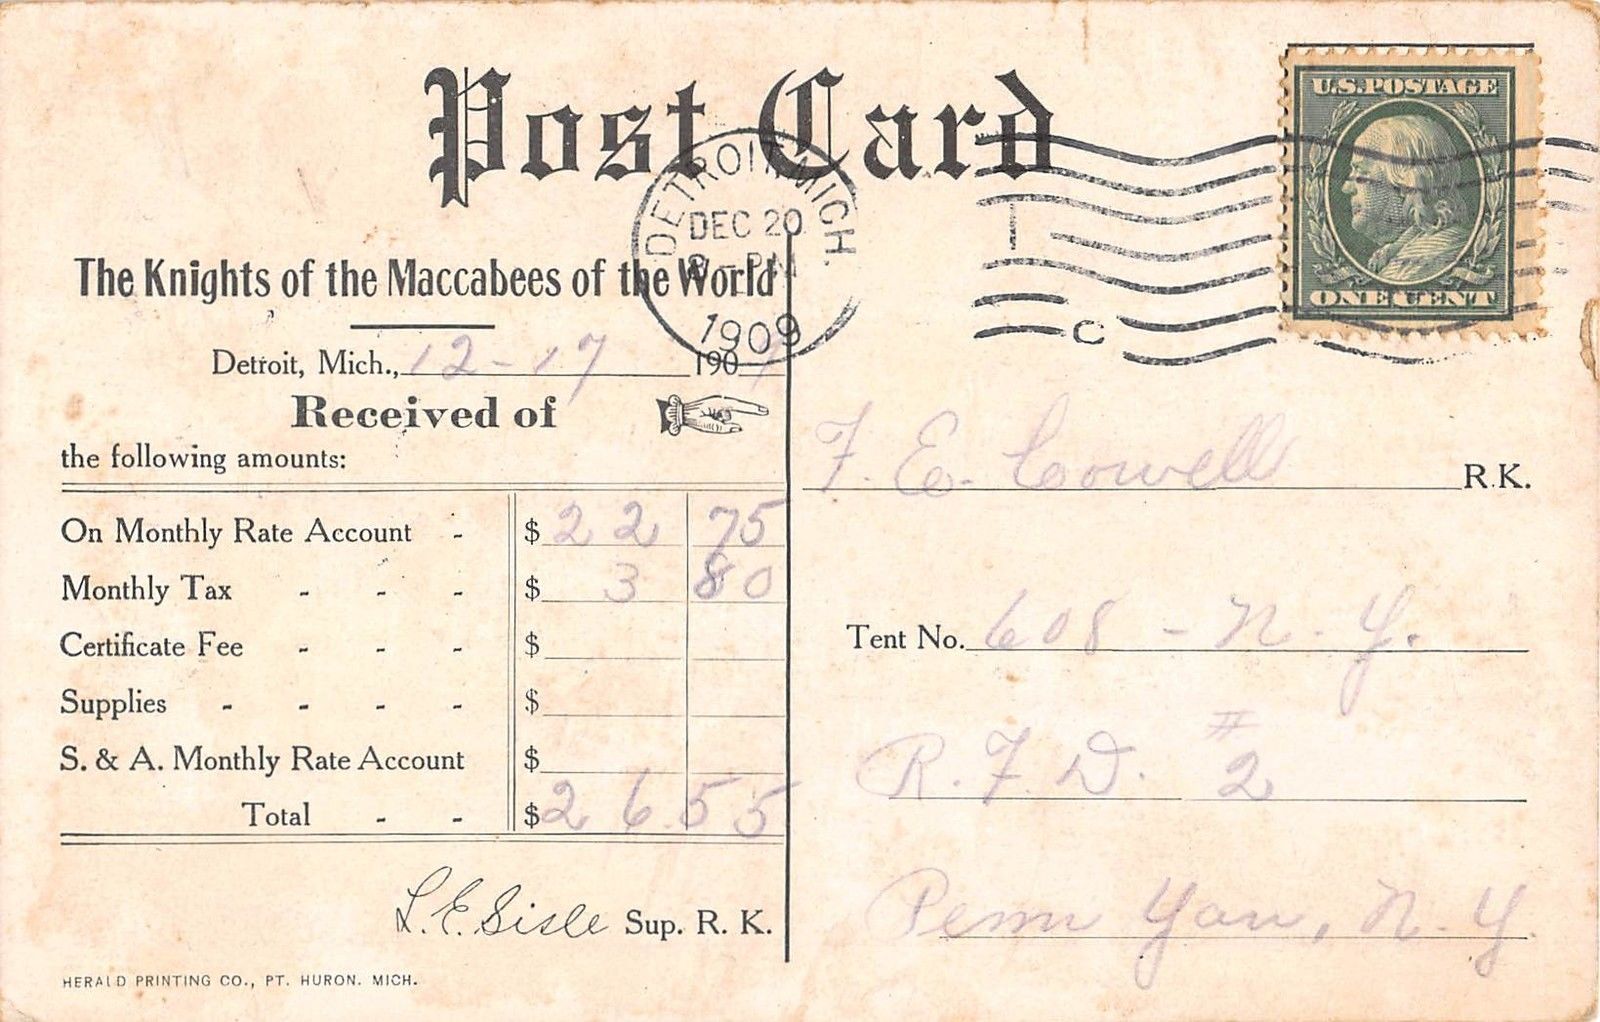 Post Card
U.S. POSTAGE
ONE CENT
DETROIT, MICH.
DEC 20
8 - PM
1909
C
The Knights of the Maccabees of the World
Detroit, Mich., 12 - 17 1909
Received of
the following amounts:
On Monthly Rate Account - $ 22 75
Monthly Tax - - - $ 3 80
Certificate Fee - - - $
Supplies - - - - $
S. & A. Monthly Rate Account $
Total - - $ 26 55
L. E. Sisle Sup. R. K.
HERALD PRINTING CO., PT. HURON. MICH.
F. E. Cowell R.K.
Tent No. 608 - N. Y.
R. F. D. # 2
Penn Yan, N. Y.